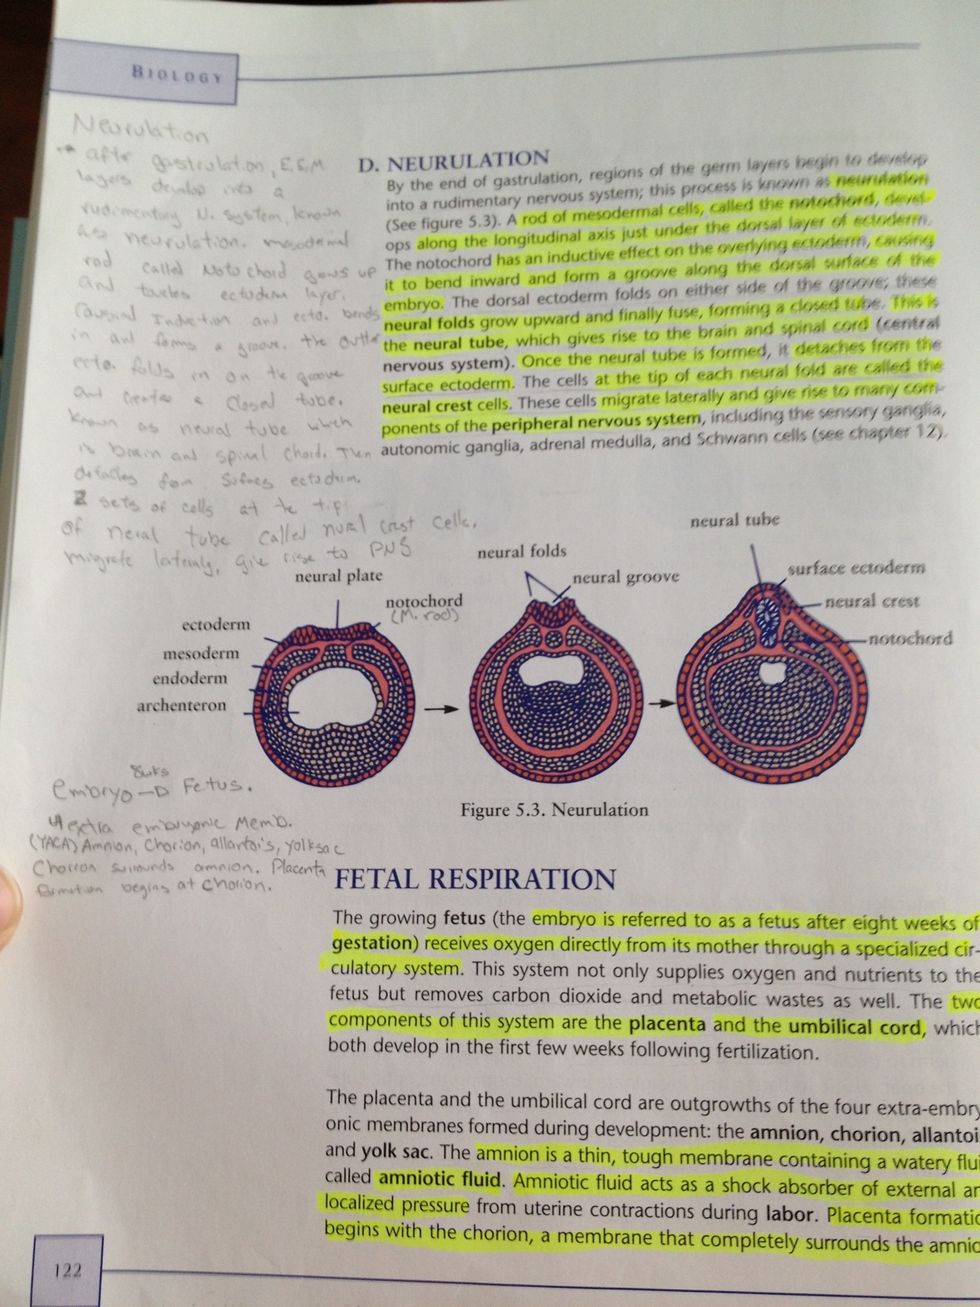 BIOLOGY
Neurulation
after gastrulation, E.E.M
layers develop into a
rudimentary N. System, known
as neurulation. mesodermal
rod called Notochord grows up
and touches ectoderm layer.
Causing Induction and ecto. bends
in and forms a groove. the outter
ecto. folds in on the groove
and creates a closed tube.
known as neural tube which
is brain and spinal chord. Then
detaches from surface ectoderm.
2 sets of cells at the tip
of neural tube called nural crest cells.
migrate laterally, give rise to PNS
D. NEURULATION
By the end of gastrulation, regions of the germ layers begin to develop
into a rudimentary nervous system; this process is known as neurulation
(See figure 5.3). A rod of mesodermal cells, called the notochord, devel-
ops along the longitudinal axis just under the dorsal layer of ectoderm.
The notochord has an inductive effect on the overlying ectoderm, causing
it to bend inward and form a groove along the dorsal surface of the
embryo. The dorsal ectoderm folds on either side of the groove; these
neural folds grow upward and finally fuse, forming a closed tube. This is
the neural tube, which gives rise to the brain and spinal cord (central
nervous system). Once the neural tube is formed, it detaches from the
surface ectoderm. The cells at the tip of each neural fold are called the
neural crest cells. These cells migrate laterally and give rise to many com-
ponents of the peripheral nervous system, including the sensory ganglia,
autonomic ganglia, adrenal medulla, and Schwann cells (see chapter 12).
neural plate
notochord
(M. rod)
ectoderm
mesoderm
endoderm
archenteron
neural folds
neural groove
neural tube
surface ectoderm
neural crest
notochord
Figure 5.3. Neurulation
8wks
embryo → Fetus.
4 extra embryonic Memb.
(YACA) Amnion, Chorion, allantois, yolksac
Chorion surrounds amnion. Placenta
formation begins at chorion.
FETAL RESPIRATION
The growing fetus (the embryo is referred to as a fetus after eight weeks of
gestation) receives oxygen directly from its mother through a specialized cir-
culatory system. This system not only supplies oxygen and nutrients to the
fetus but removes carbon dioxide and metabolic wastes as well. The two
components of this system are the placenta and the umbilical cord, which
both develop in the first few weeks following fertilization.
The placenta and the umbilical cord are outgrowths of the four extra-embry
onic membranes formed during development: the amnion, chorion, allantoi
and yolk sac. The amnion is a thin, tough membrane containing a watery flui
called amniotic fluid. Amniotic fluid acts as a shock absorber of external an
localized pressure from uterine contractions during labor. Placenta formatio
begins with the chorion, a membrane that completely surrounds the amnio
122